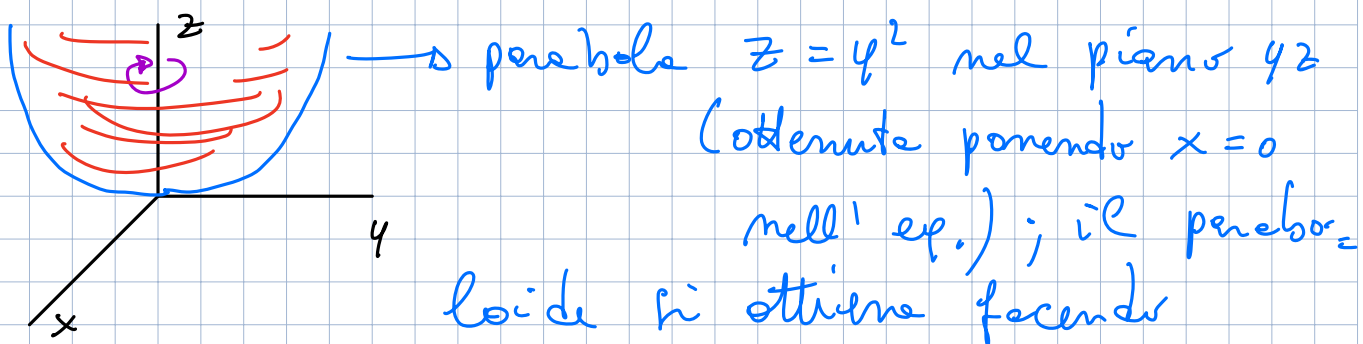 z
parabola z = y² nel piano yz
(ottenuta ponendo x = 0
y
nell' eq.) ; il parabo=
loide si ottiene facendo
x